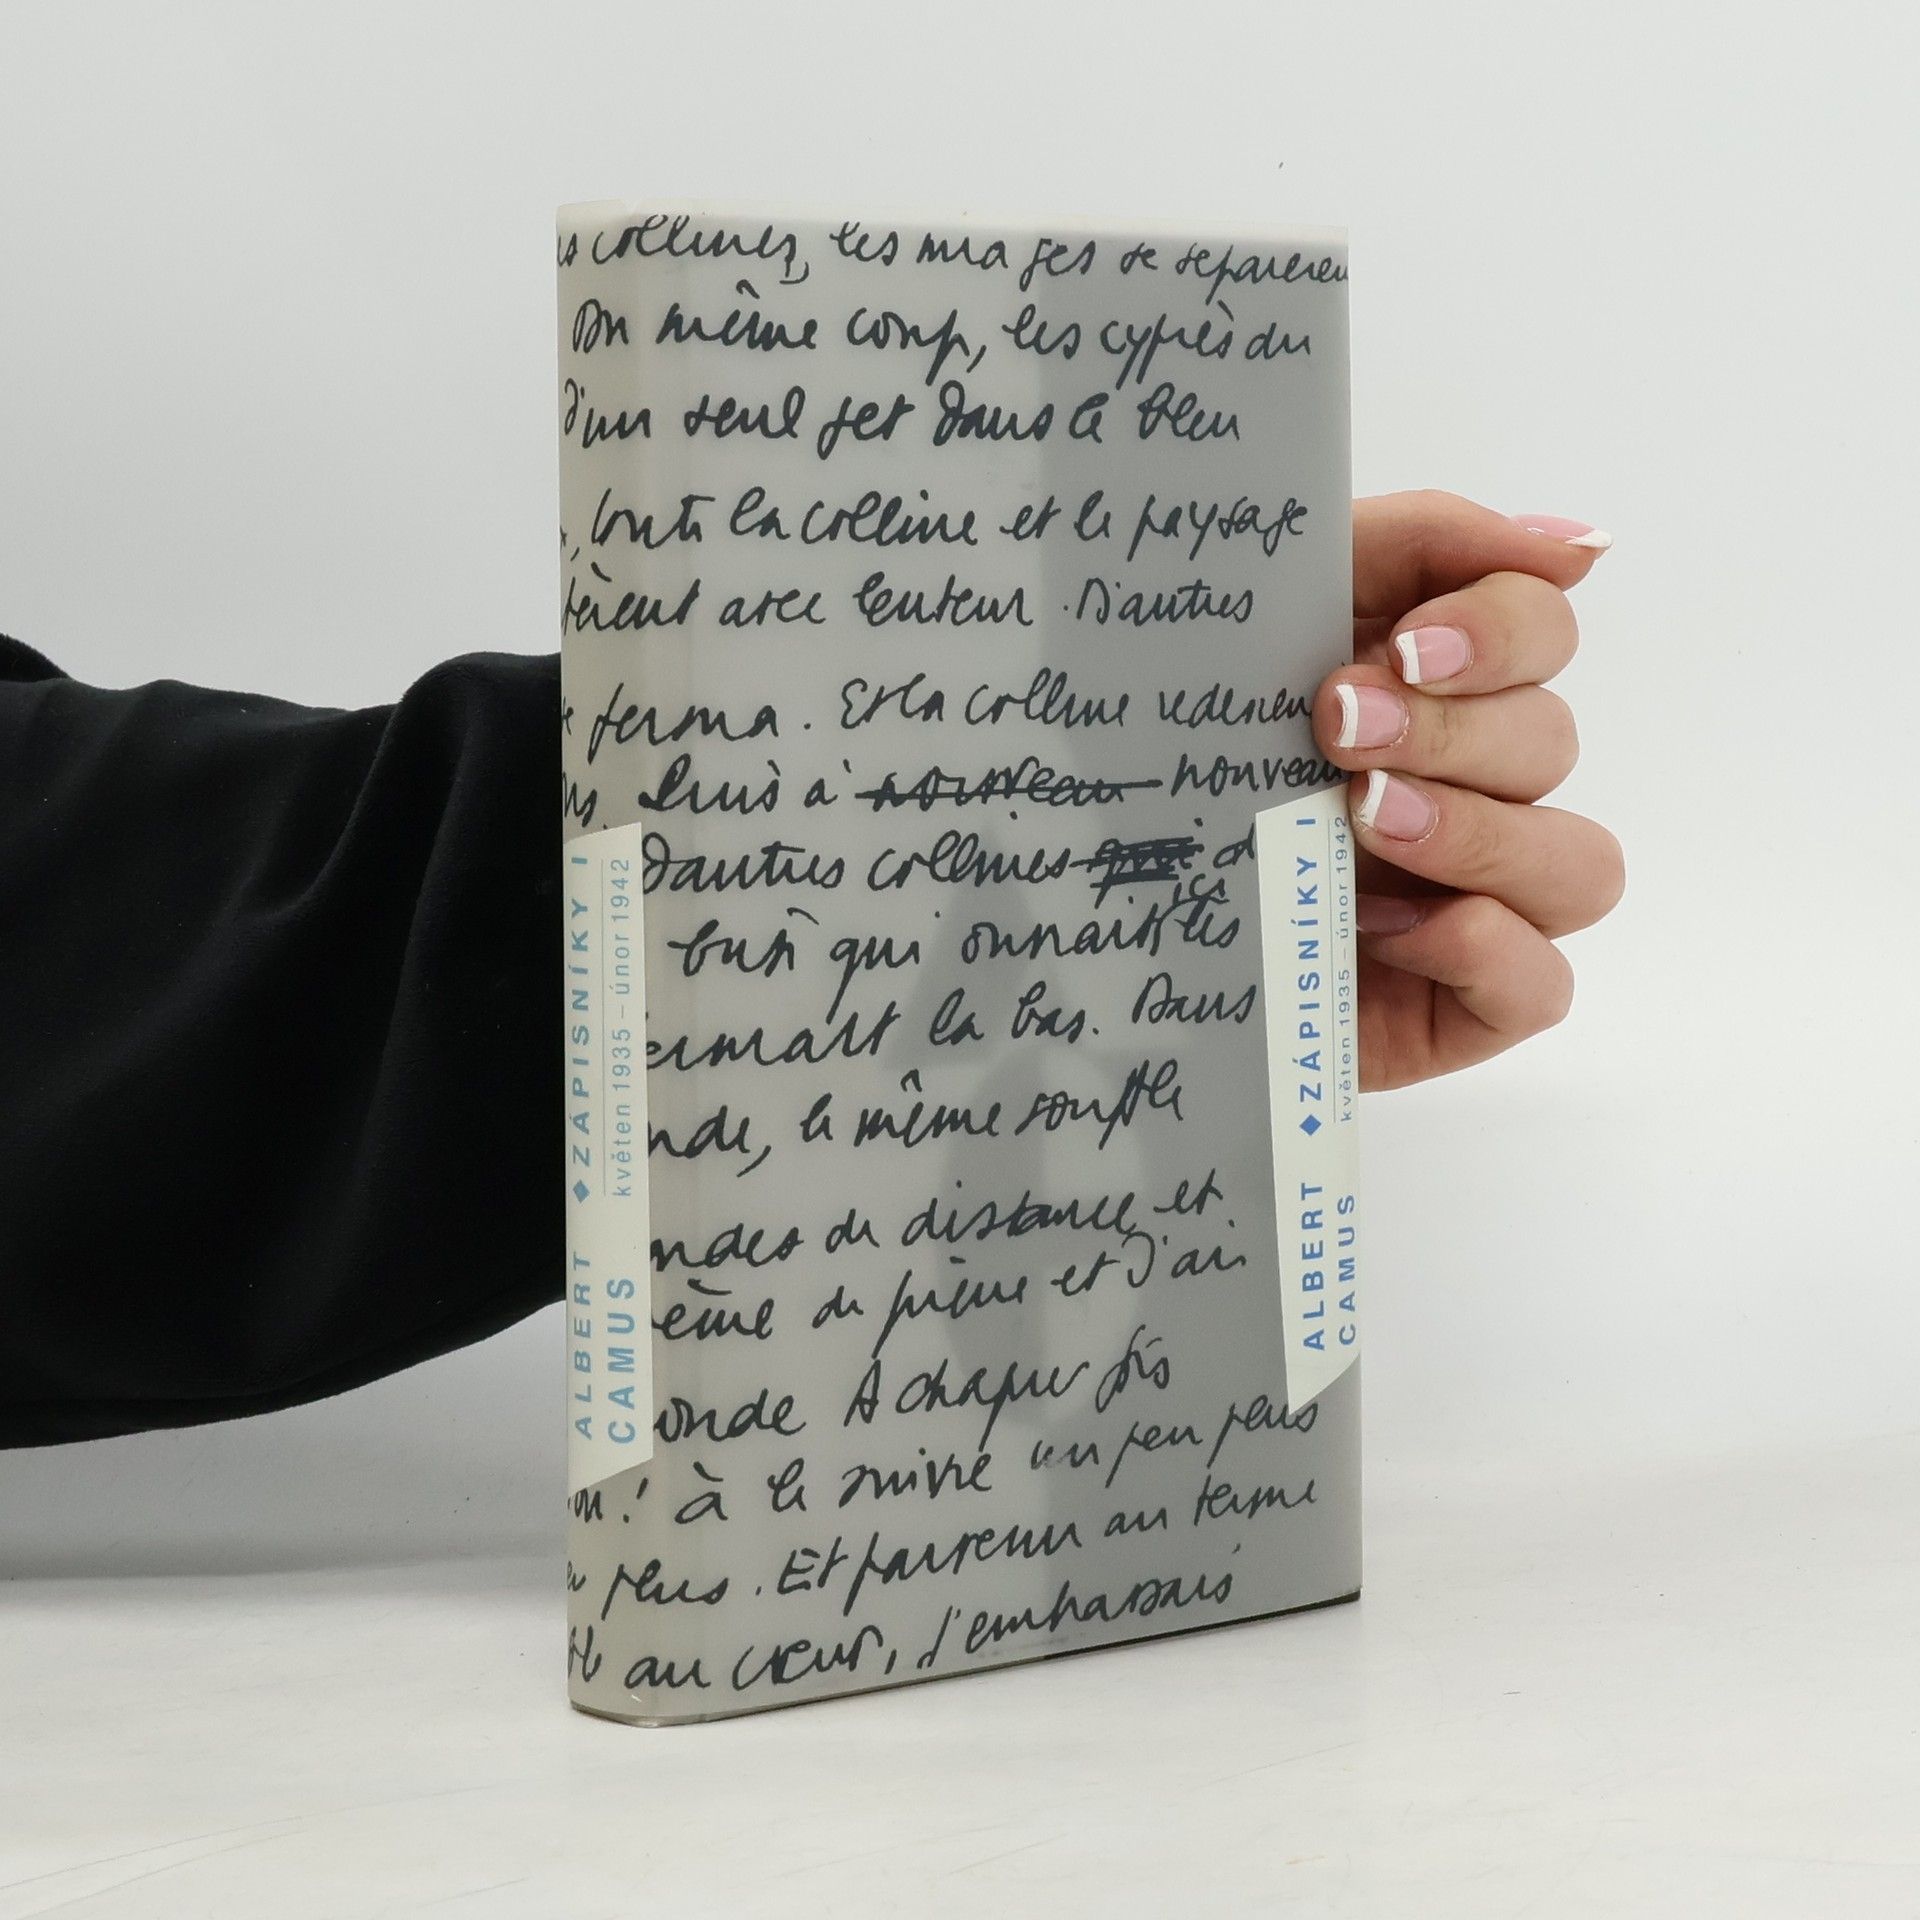 collines, les nuages se séparèren
Du même coup, les cyprès du
d'un seul jet dans le bleu
toute la colline et le paysage
tèrent avec lenteur. D'autres
ferma. Et la colline
Puis à nouveau nouveau
D'autres collines
qui
la bas. Dans
nde, le même souffle
ndes de distance et
ême de pierre et J'ai
onde A chaque fois
! à le suivre un peu plus
plus. Et parvenu au terme
au cœur, j'embrassais
ALBERT CAMUS ◆ ZÁPISNÍKY I
květen 1935 – únor 1942
ALBERT CAMUS ◆ ZÁPISNÍKY I
květen 1935 – únor 1942